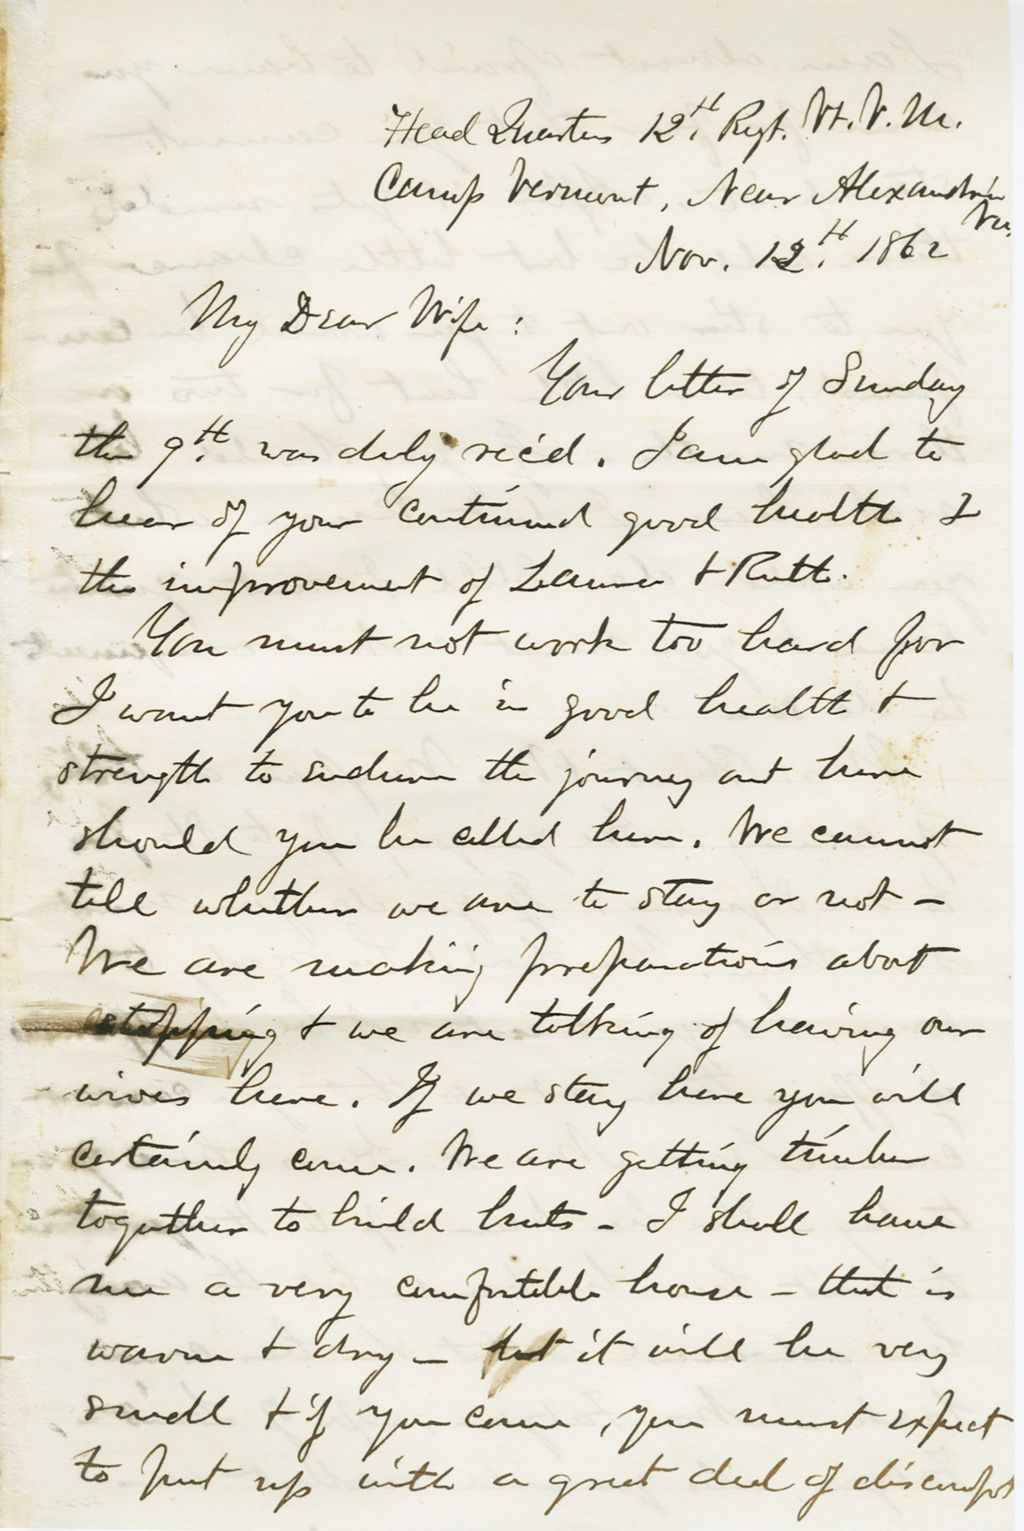 Head Quarters 12th. Regt. Vt. V. M.
Camp Vermont, Near Alexandria
Va.
Nov. 12th. 1862
My Dear Wife:
Your letter of Sunday
the 9th. was duly rec'd. I am glad to
hear of your continued good health &
the improvement of Laura & Ruth.
You must not work too hard for
I want you to be in good health &
strength to endure the journey out here
should you be called here. We cannot
tell whether we are to stay or not –
We are making preparations about
stopping & we are talking of having our
wives here. If we stay here you will
certainly come. We are getting timber
together to build huts – I shall have
me a very comfortable house – that is
warm & dry – but it will be very
small & if you come, you must expect
to put up with a great deal of discomfort